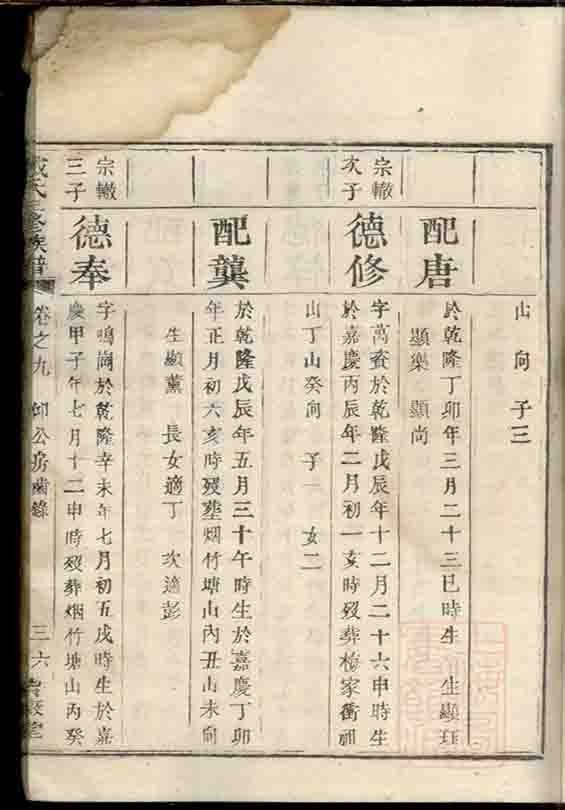 山向 子三
配唐
於乾隆丁卯年三月二十三巳時生 生顯珏
顯樂 顯尚
宗轍
次子
德修
字萬㳺於乾隆戊辰年十二月二十六申時生
於嘉慶丙辰年二月初一亥時歿葬檢家衝祖
山丁山癸向 子一 女二
配龔
於乾隆戊辰年五月三十午時生於嘉慶丁卯
年正月初六亥時歿塟烟竹塘山內丑山未向
生顯薰 長女適丁 次適彭
宗轍
三子
德奉
字鳴崗於乾隆辛未年七月初五戌時生於嘉
慶甲子年七月十二申時歿葬烟竹塘山丙癸
氏三修族譜
卷之九 公房齒錄
三六